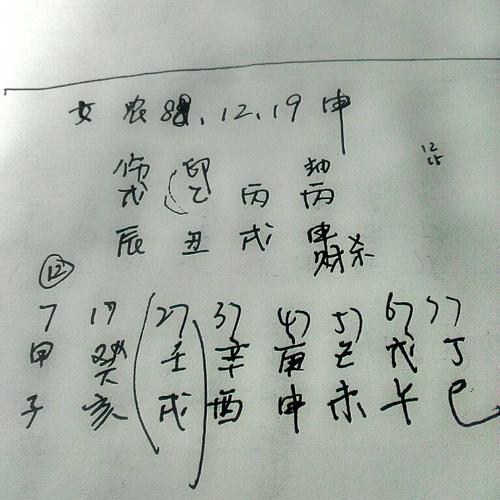 女 农 88.12.19 申
伤 印 劫
戊 乙 丙 丙
辰 丑 戌 申
财杀
12
15
12
7 17 27 37 47 57 67 77
甲 癸 壬 辛 庚 己 戊 丁
子 亥 戌 酉 申 未 午 巳